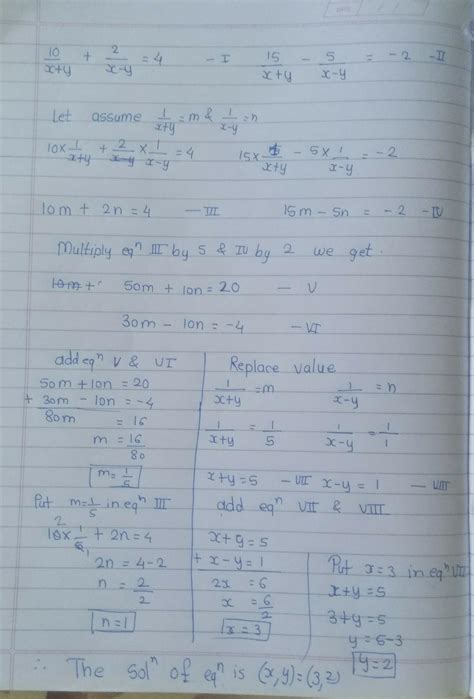 10/(x+y) + 2/(x-y) = 4 — I    15/(x+y) - 5/(x-y) = -2 — II
Let assume 1/(x+y) = m & 1/(x-y) = n
10 × 1/(x+y) + 2 × 1/(x-y) = 4    15 × 1/(x+y) - 5 × 1/(x-y) = -2
10m + 2n = 4 — III    15m - 5n = -2 — IV
Multiply eqⁿ III by 5 & IV by 2 we get.
10m + 50m + 10n = 20 — V
30m - 10n = -4 — VI
add eqⁿ V & VI
50m + 10n = 20
+ 30m - 10n = -4
80m = 16
m = 16/80
m = 1/5
Put m = 1/5 in eqⁿ III
2
10 × 1/5 + 2n = 4
1
2n = 4-2
n = 2/2
n = 1
Replace value
1/(x+y) = m    1/(x-y) = n
1/(x+y) = 1/5    1/(x-y) = 1/1
x+y = 5 — VII    x-y = 1 — VIII
add eqⁿ VII & VIII
x+y = 5
+ x-y = 1
2x = 6
x = 6/2
x = 3
Put x = 3 in eqⁿ VII
x+y = 5
3+y = 5
y = 5-3
y = 2
∴ The solⁿ of eqⁿ is (x,y) = (3,2)